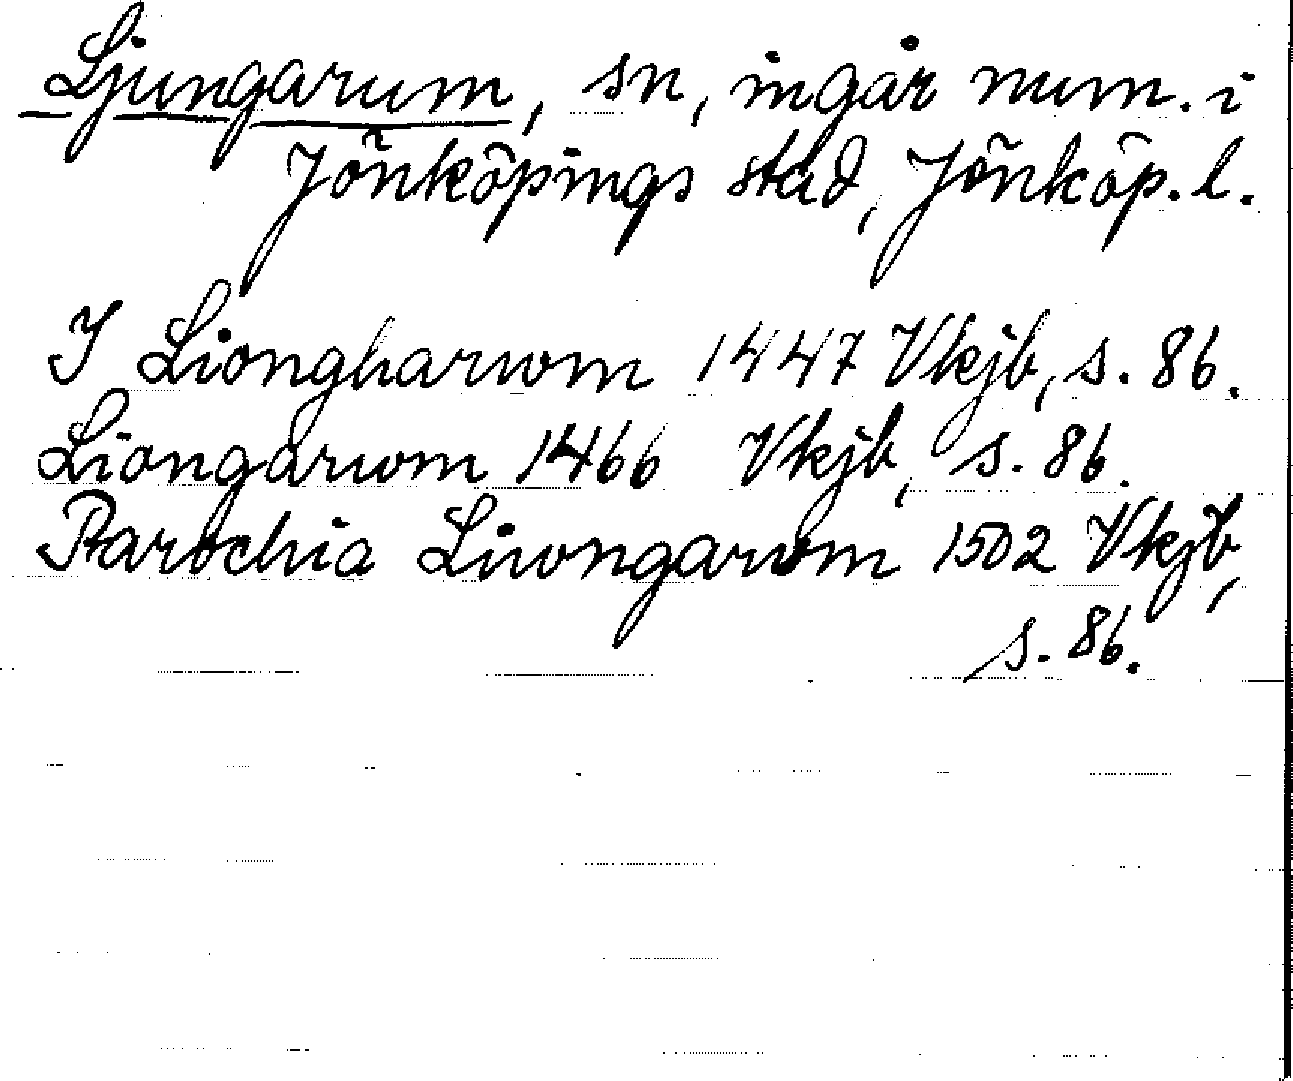 Ljungarum, sn, ingår num. i
Jönköpings stad, Jönköp. l.
I Liongharwm 1447 Vkjb, s. 86.
Liongarwm 1466 Vkjb, s. 86.
Parochia Liwongarwm 1502 Vkjb,
s. 86.